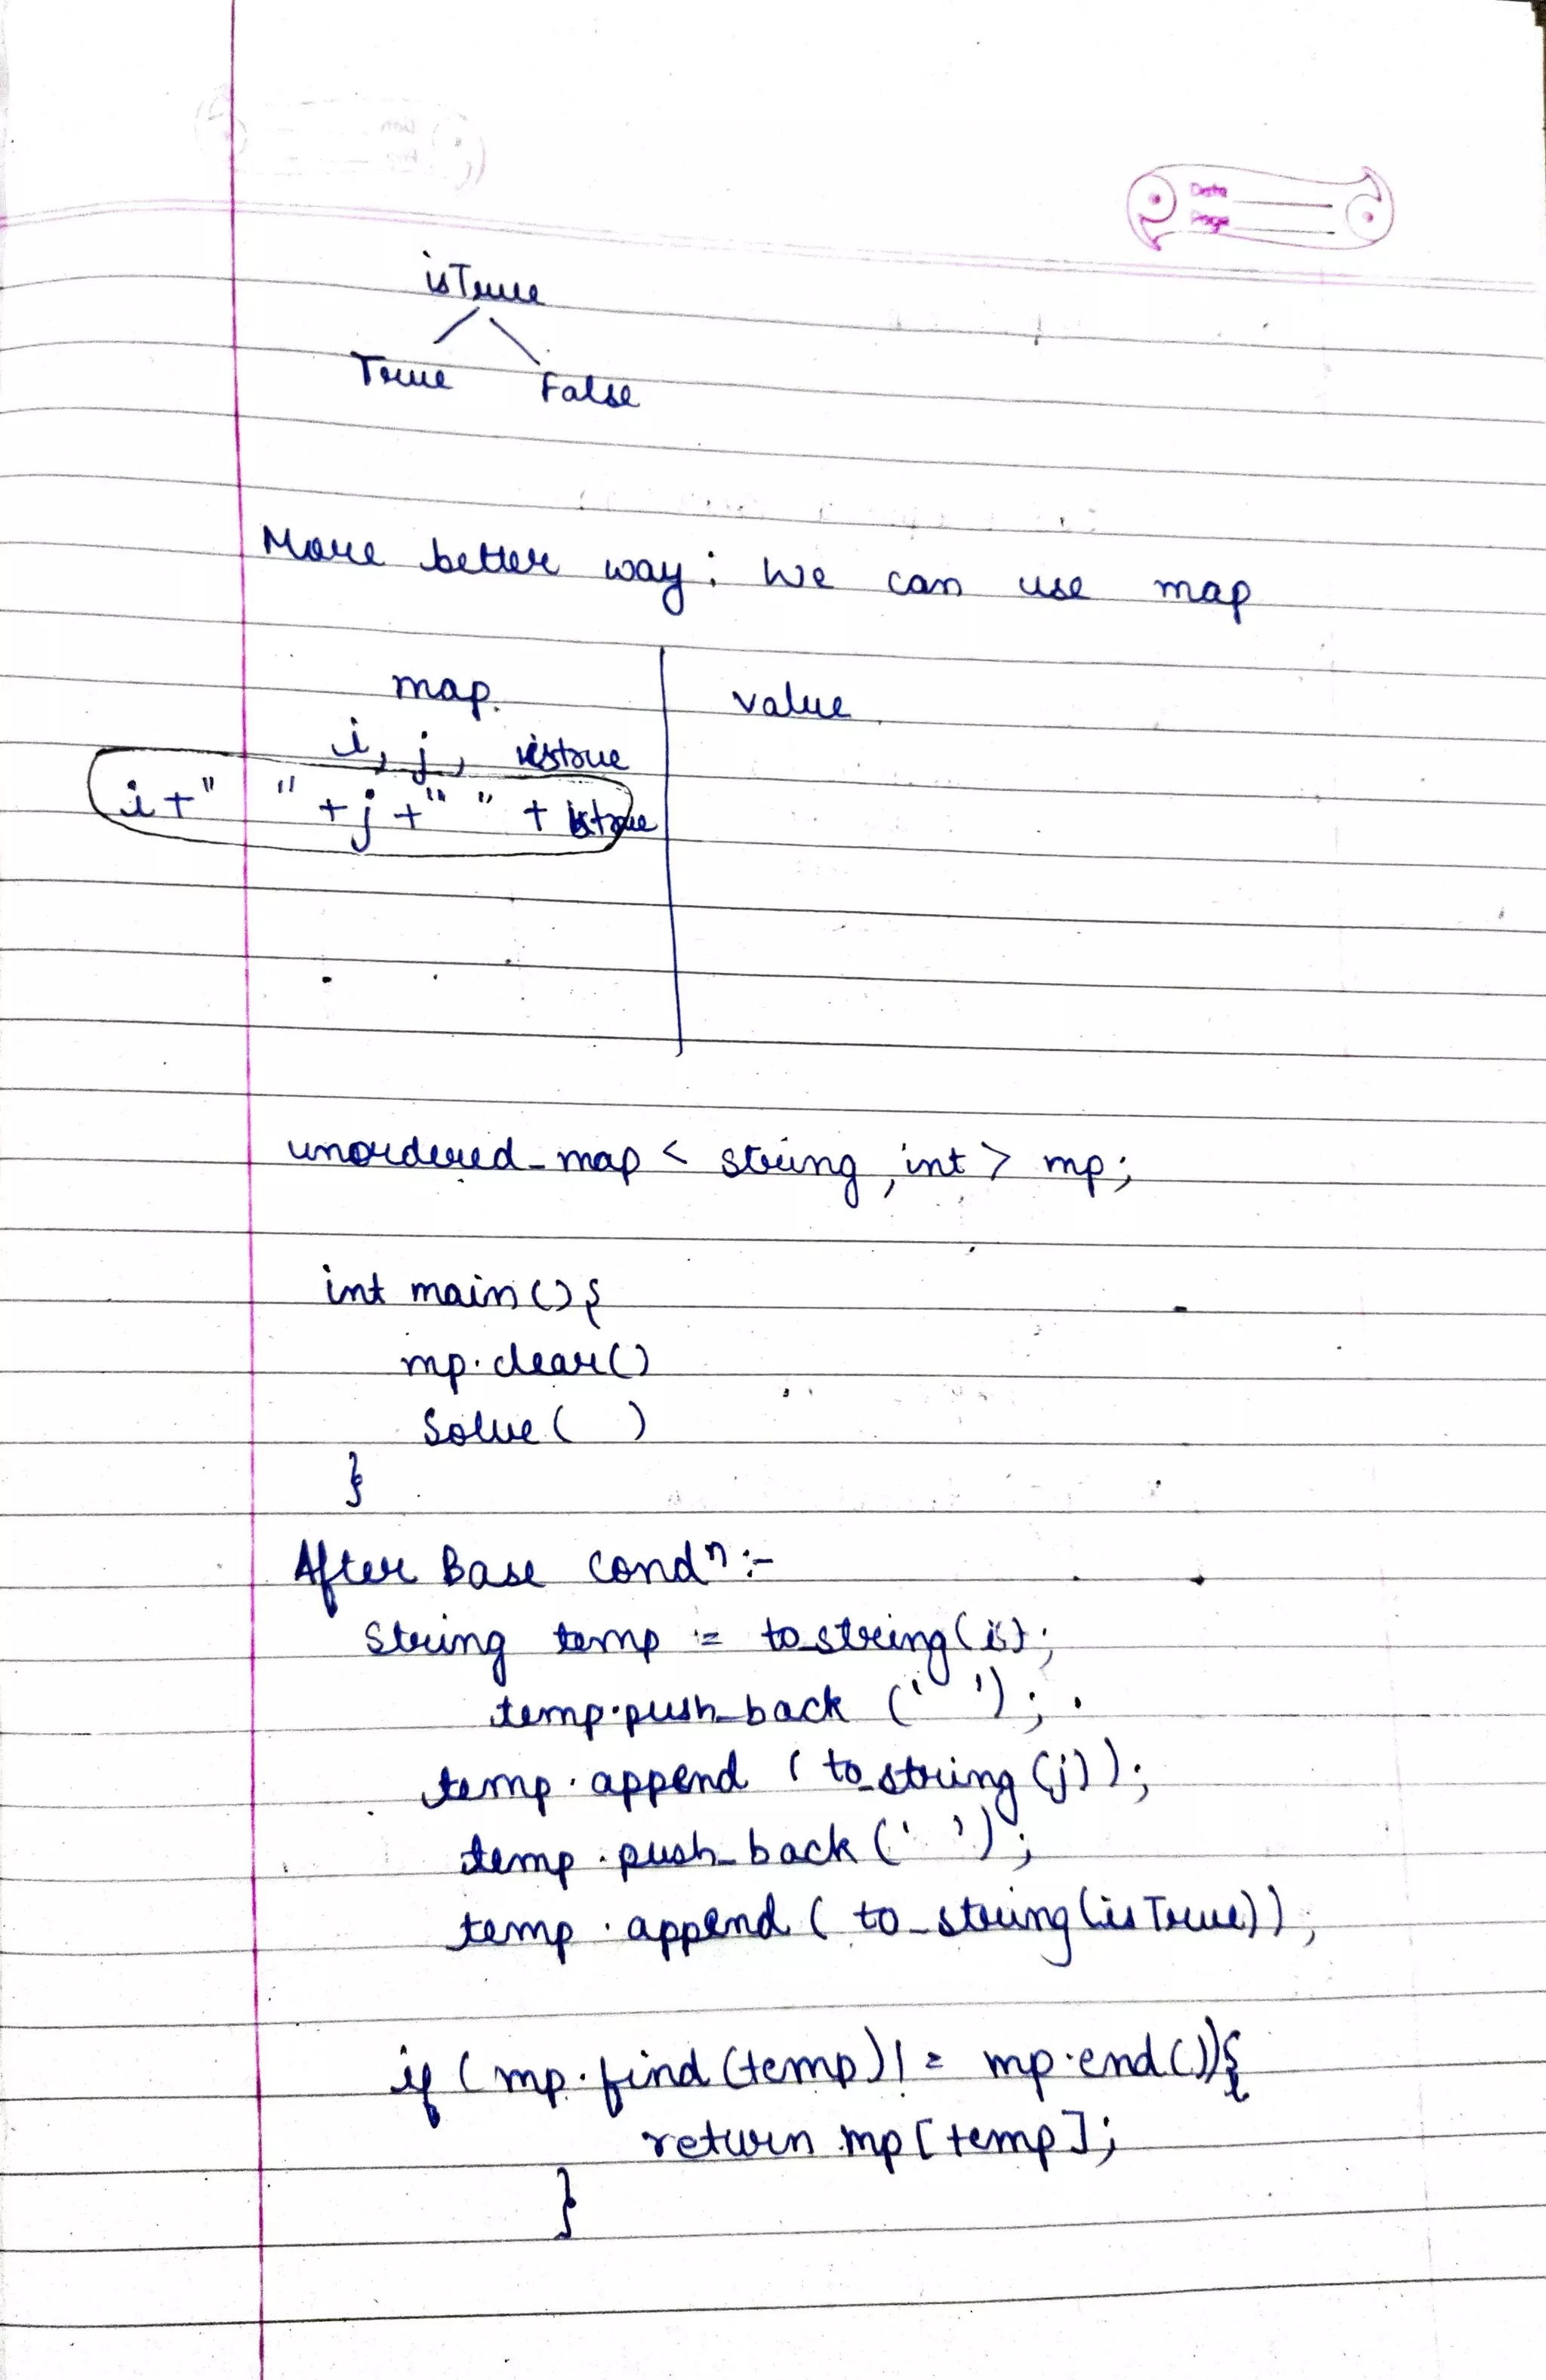 Date
Page
isTrue
True False
More better way: We can use map
map. value
i, j, istrue
i+" " +j+" " + istrue
unordered_map < string, int> mp;
int main(){
mp.clear()
Solve( )
}
After Base condn:-
String temp = to_string(i);
temp.push_back (' ');
temp.append (to_string(j));
temp.push_back(' ');
temp.append( to_string(isTrue));
if (mp.find(temp)!= mp.end()){
return mp[temp];
}